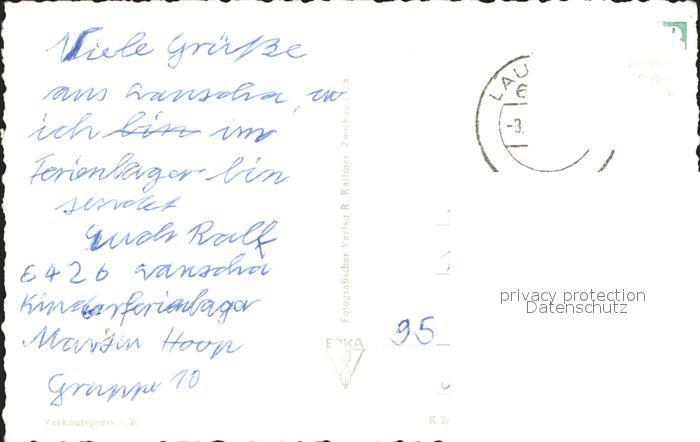 Viele Grüße
aus Lauscha, wo
ich bin im
Ferienlager bin
sendet
Euch Ralf
6426 Lauscha
Kinderferienlager
Martin Hoop
Gruppe 10
Verkaufspreis -,20
Fotografischer Verlag R. Kallmer, Zwickau
ERKA
K 2/
95
LAU
6
-3.
privacy protection
Datenschutz